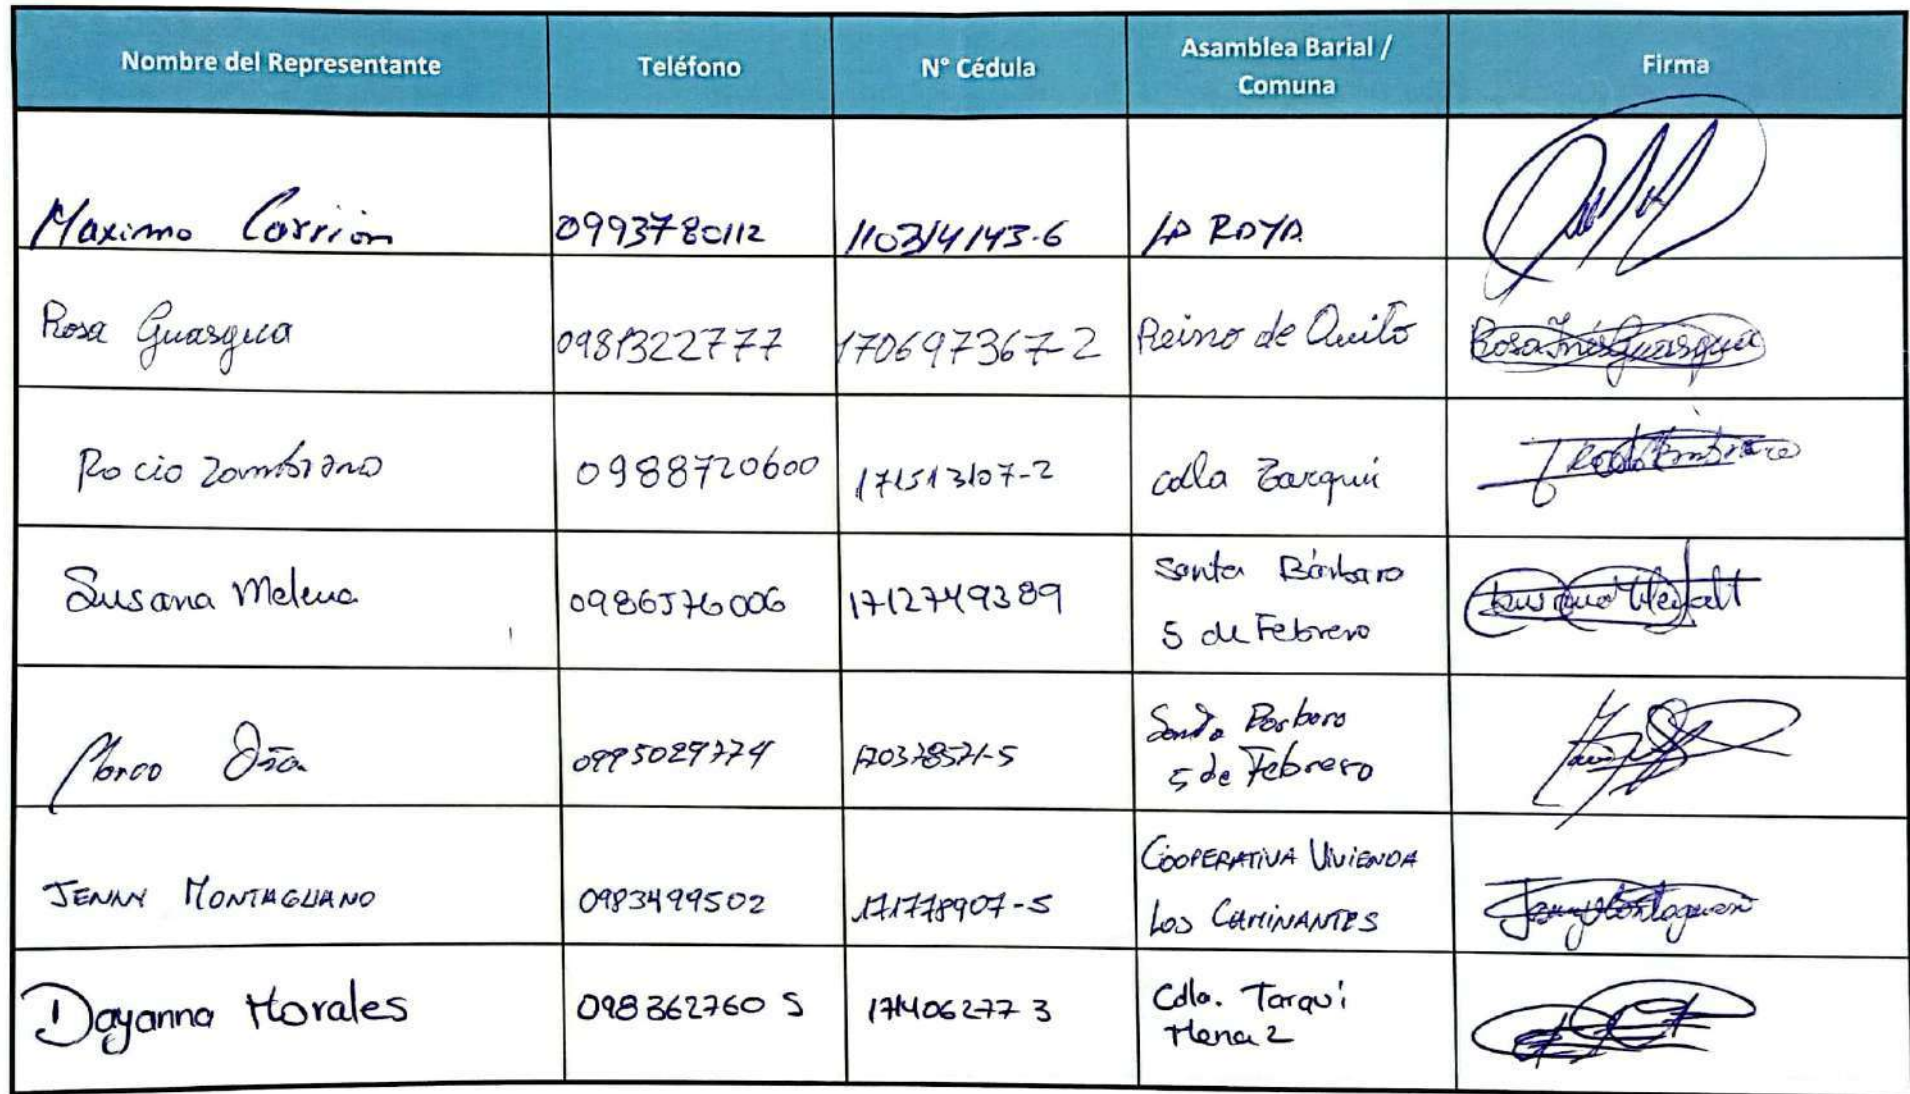 Nombre del Representante Teléfono N° Cédula Asamblea Barial / Comuna Firma
Maximo Carrion 0993780112 110314143-6 LA RAYA
Rosa Guasgua 0981322777 170697367-2 Reino de Quito Rosa Inés Guasgua
Rocio Zambrano 0988720600 171513107-2 cdla Tarqui
Susana Melena 0986576006 1712749389 Santa Bárbara
5 de Febrero
Marco 0995029774 170378571-5 Santa Barbara
5 de Febrero
JENNY MONTAGUANO 0983499502 171778907-5 COOPERATIVA VIVIENDA
LOS CAMINANTES
Dayanna Morales 098362760 5 171406277 3 Cdla. Tarqui
Mena 2